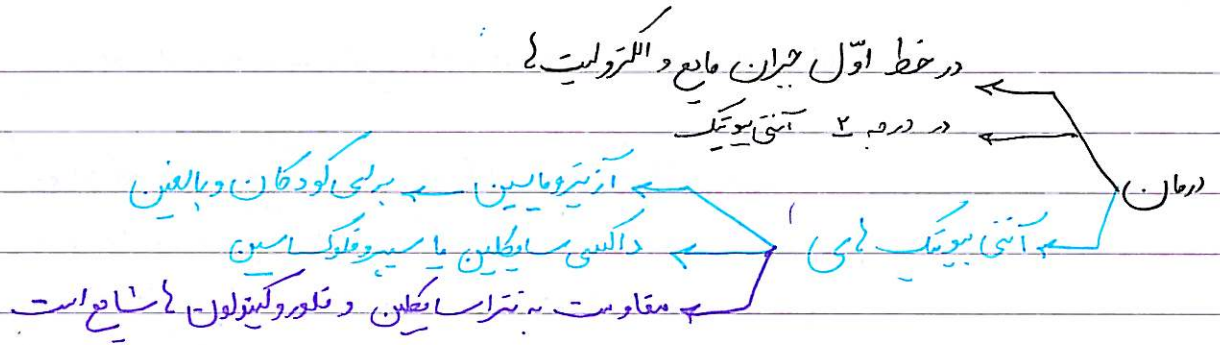 در خط اوّل جبران مایع و الکترولیت ها
در درجه ۲ آنتی بیوتیک
درمان
آزیترومایسین برای کودکان و بالغین
آنتی بیوتیک های
داکسی سایکلین یا سیپروفلوکساسین
مقاومت به تتراسایکلین و فلوروکینولون ها شایع است